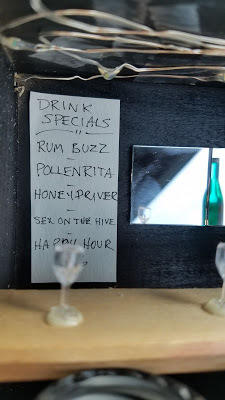 DRINK
SPECIALS
RUM BUZZ
POLLENRITA
HONEYDRIVER
SEX ON THE HIVE
HAPPY HOUR